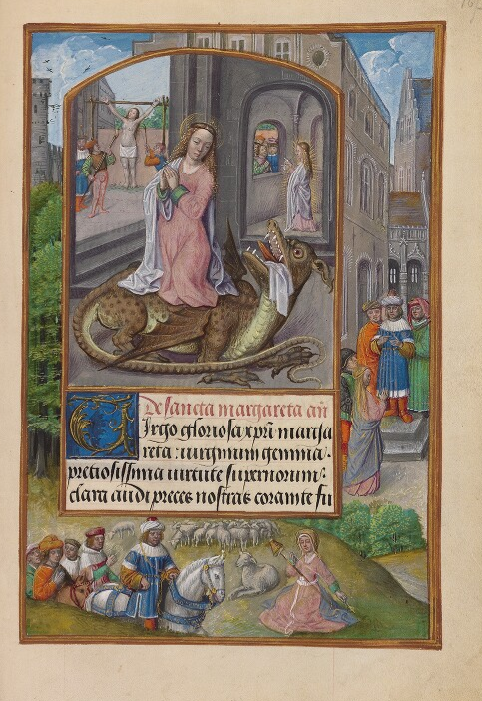 De sancta margareta añ
Uirgo gloriosa xpi marga
reta : uirginum gemma.
pretiosissima uirtute supernorum.
clara audi preces nostras coram te fu